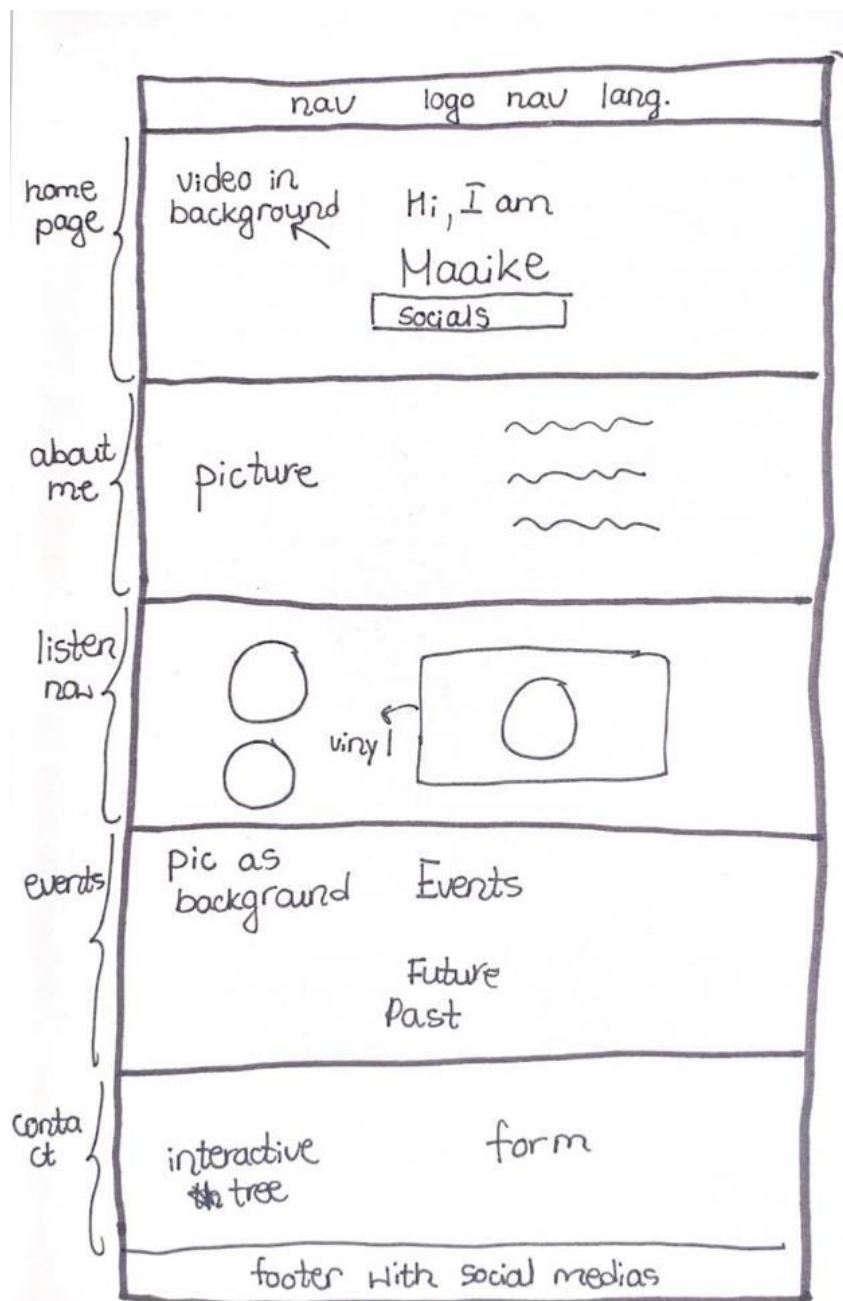 nav logo nav lang.
home
page
video in
background
Hi, I am
Maaike
socials
about
me
picture
listen
now
vinyl
events
pic as
background
Events
Future
Past
conta
ct
interactive
tree
form
footer with social medias